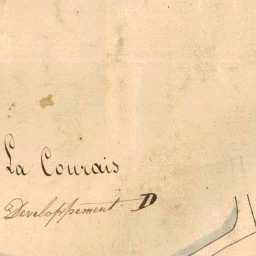 La Courais
Developpement D